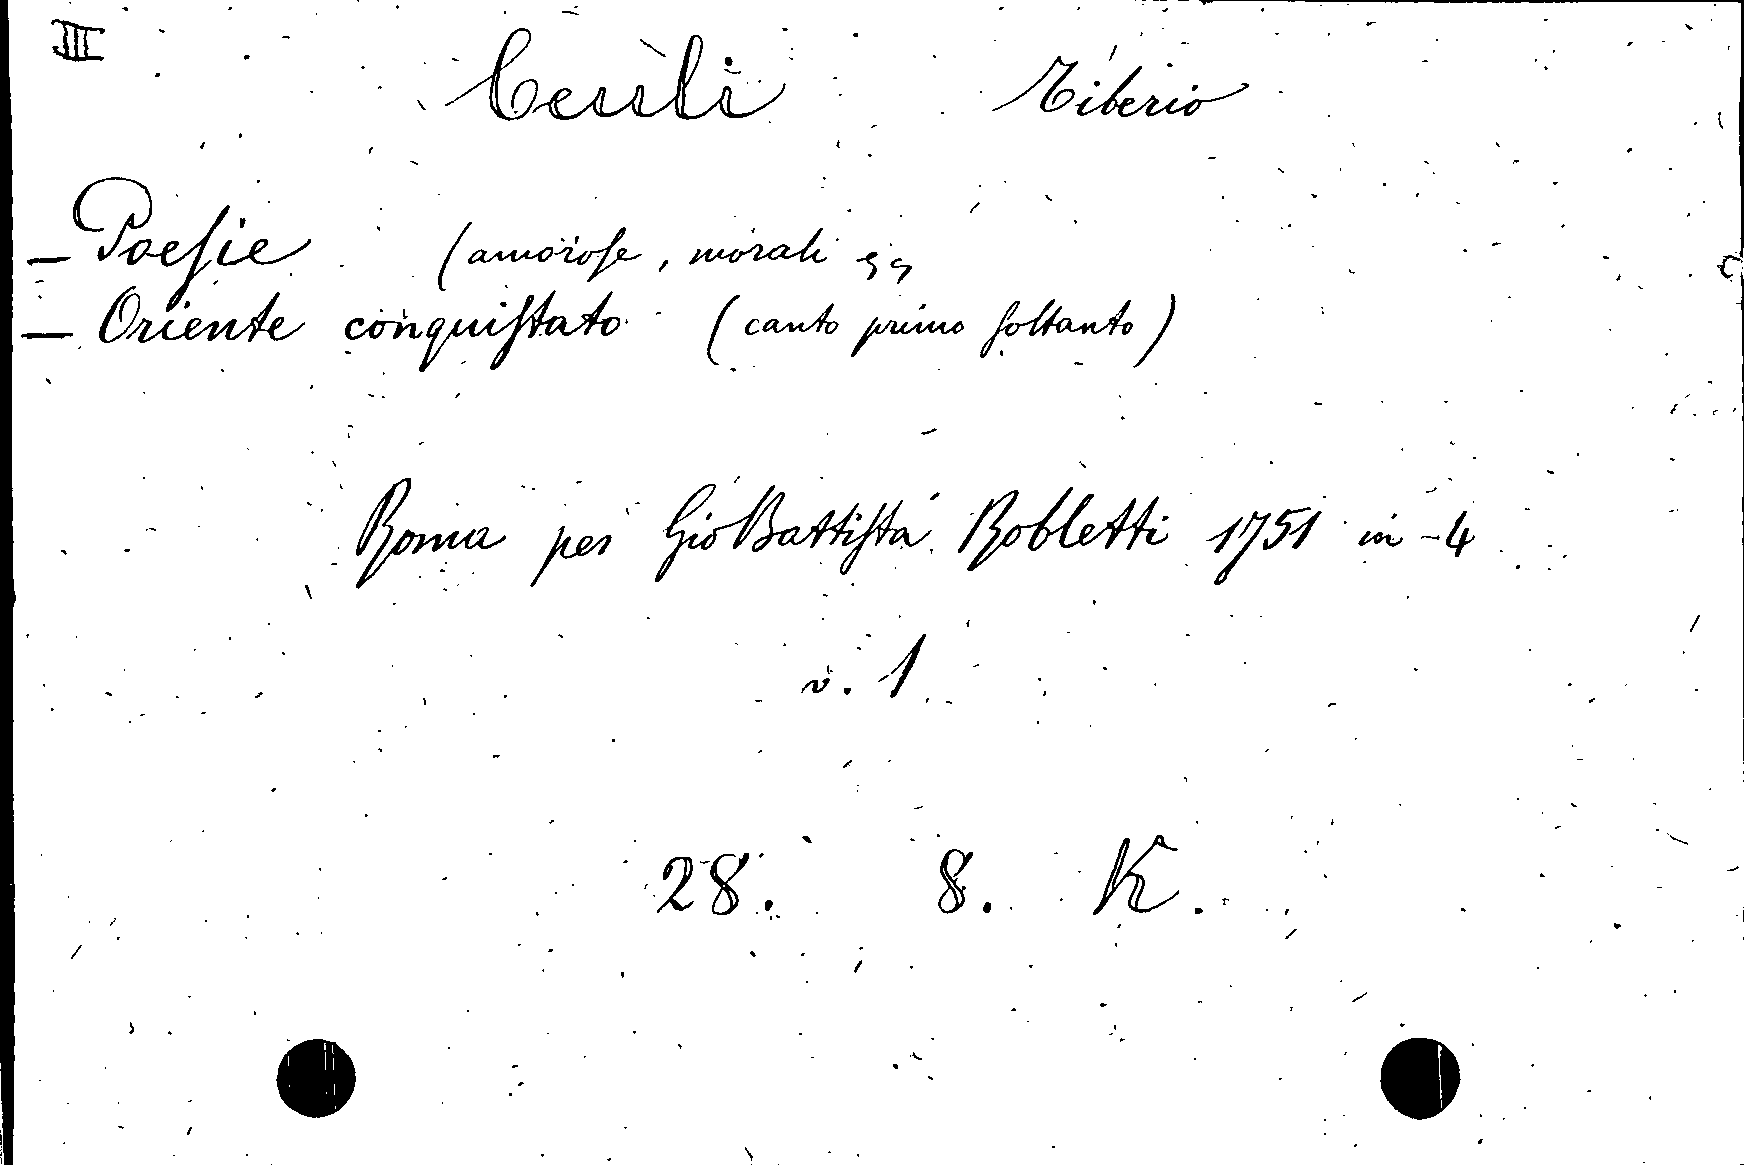 III
Ceuli Tiberio
— Poesie (amorose, morali
— Oriente conquistato (canto primo soltanto)
Roma per Gio Battista Robletti 1751 in-4
v. 1
28. 8. K.